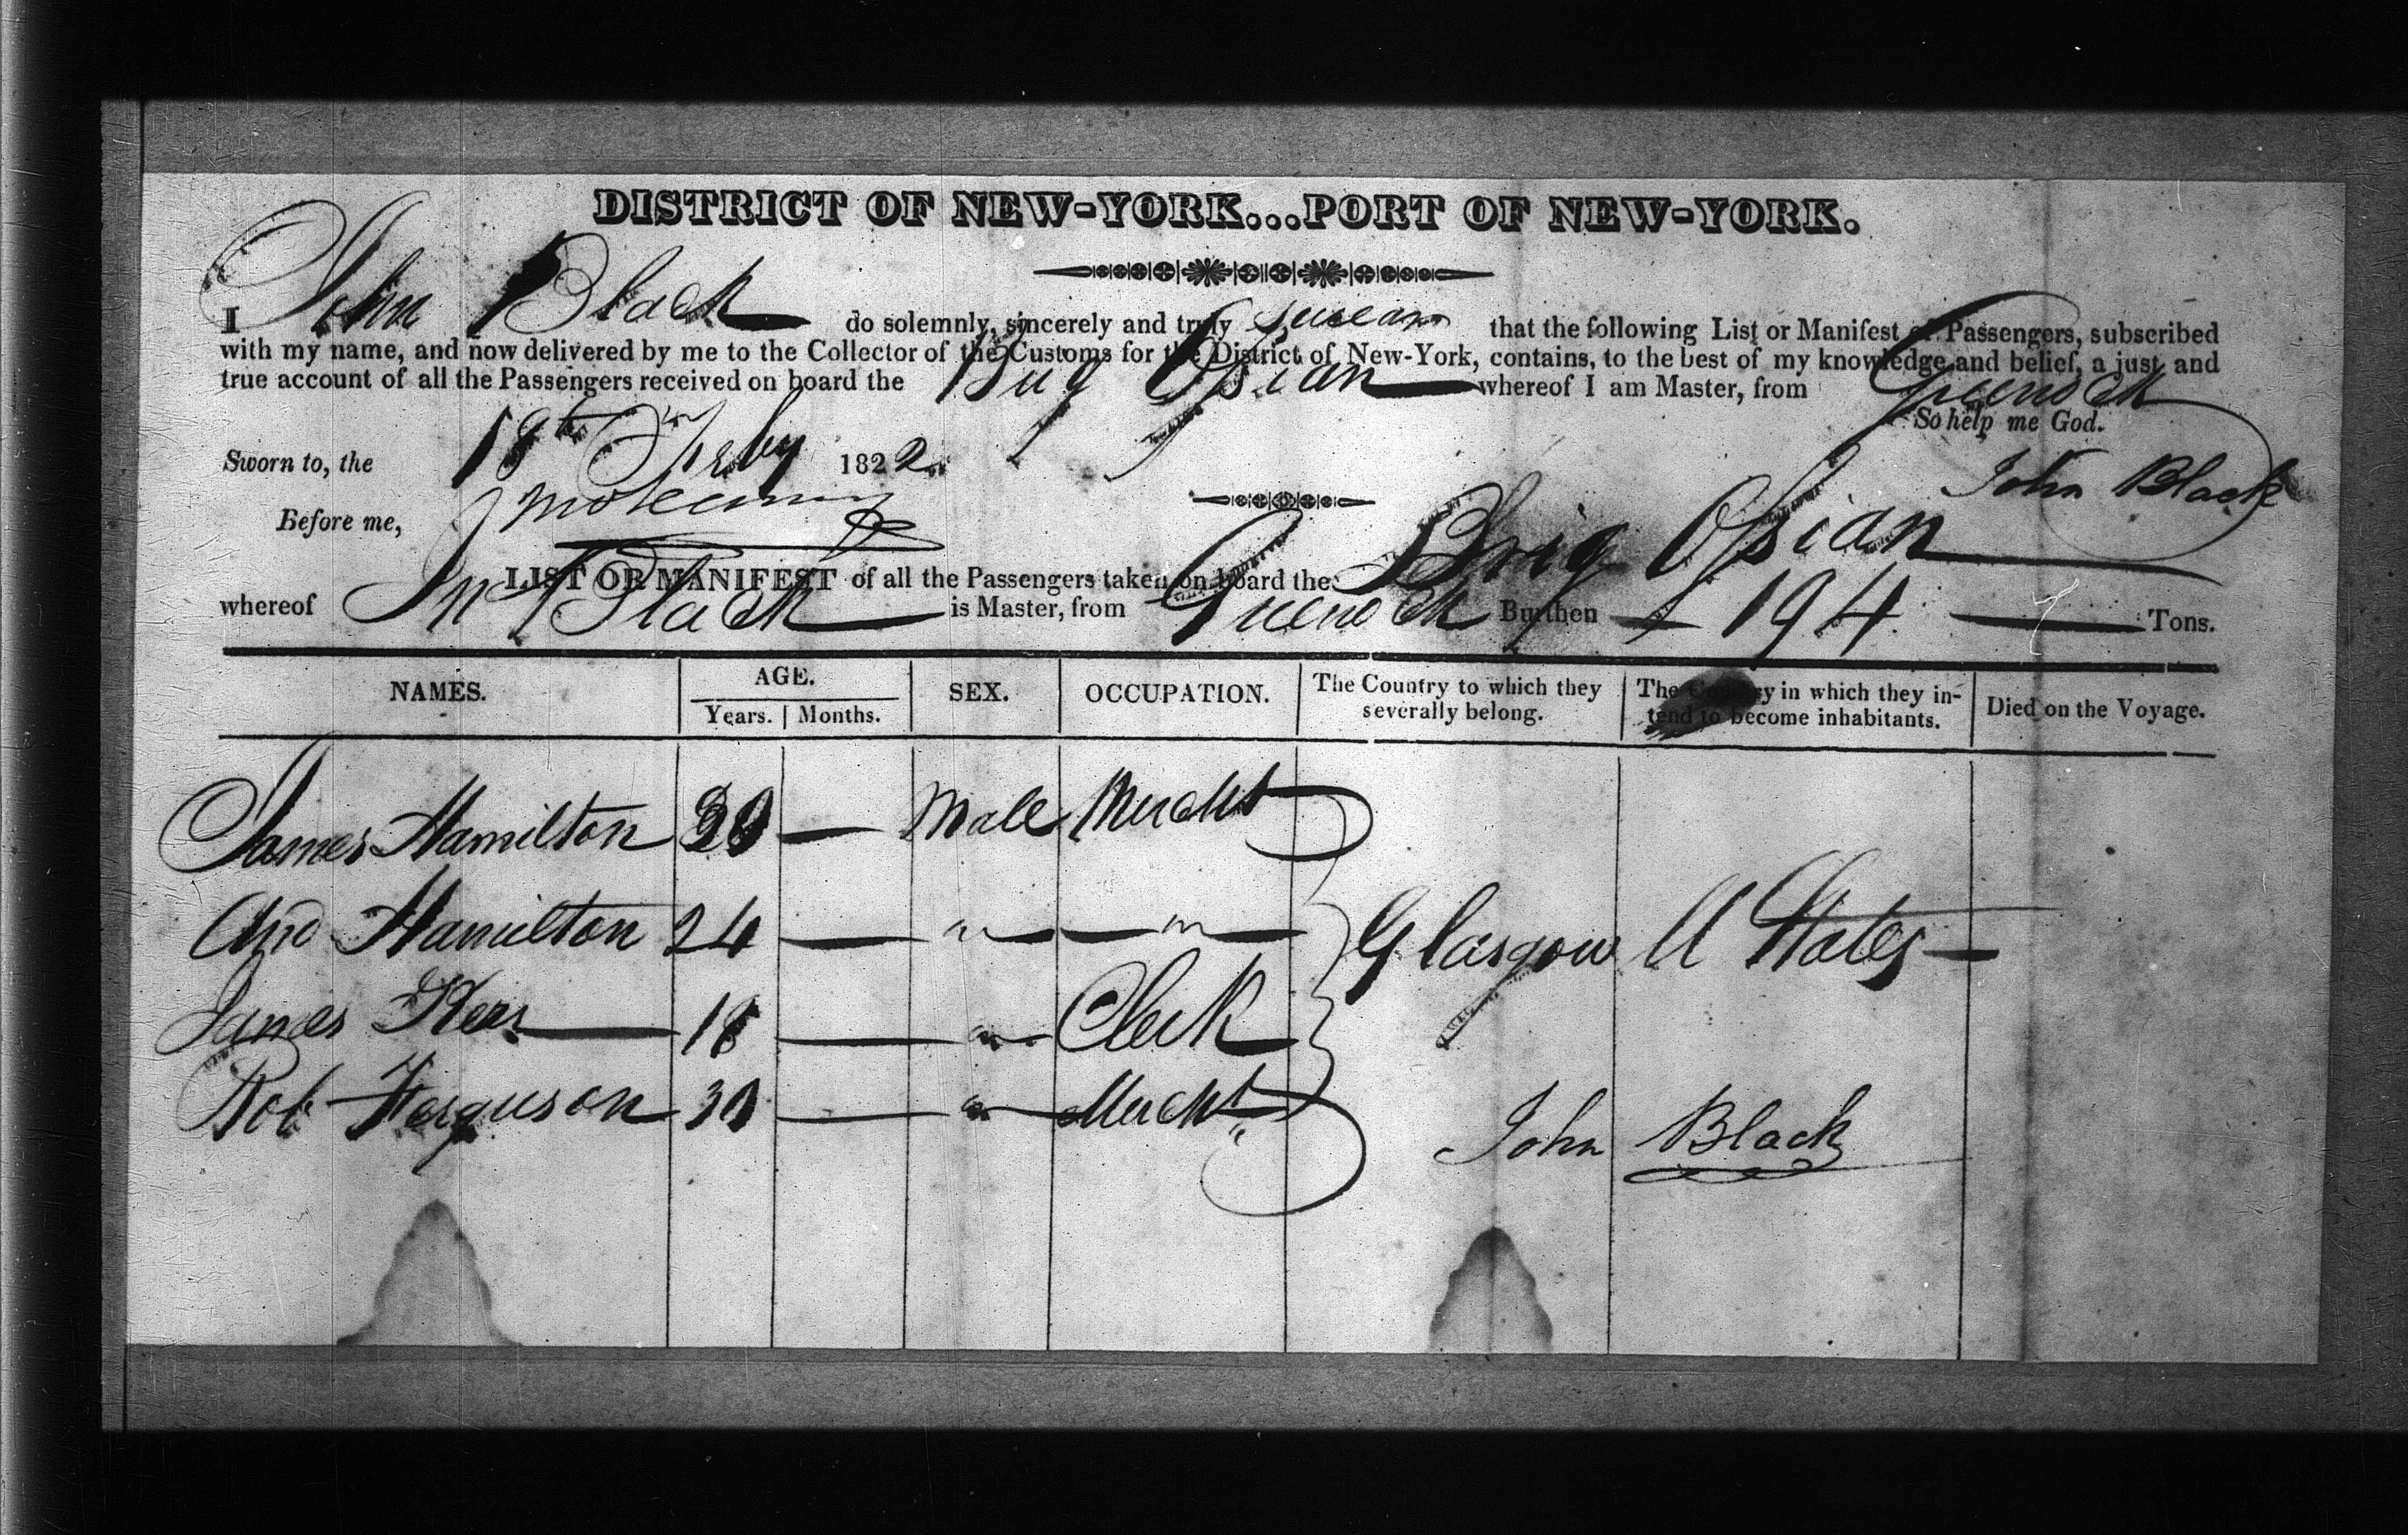 DISTRICT OF NEW-YORK...PORT OF NEW-YORK.
I John Black do solemnly, sincerely and truly swear that the following List or Manifest of Passengers, subscribed
with my name, and now delivered by me to the Collector of the Customs for the District of New-York, contains, to the best of my knowledge and belief, a just and
true account of all the Passengers received on board the Brig Ossian whereof I am Master, from Greenock
So help me God.
Sworn to, the 18th Feby 1822. John Black
Before me,
LIST OR MANIFEST of all the Passengers taken on board the Brig Ossian
whereof Jn Black is Master, from Greenock Burthen 194 Tons.
NAMES. AGE. SEX. OCCUPATION. The Country to which they severally belong. The Country in which they intend to become inhabitants. Died on the Voyage.
Years. Months.
James Hamilton — Male Mercht
And Hamilton 24 — " — " —
Glasgow U States —
James Kerr 18 — " Clerk
Rob Ferguson — " Mercht
John Black